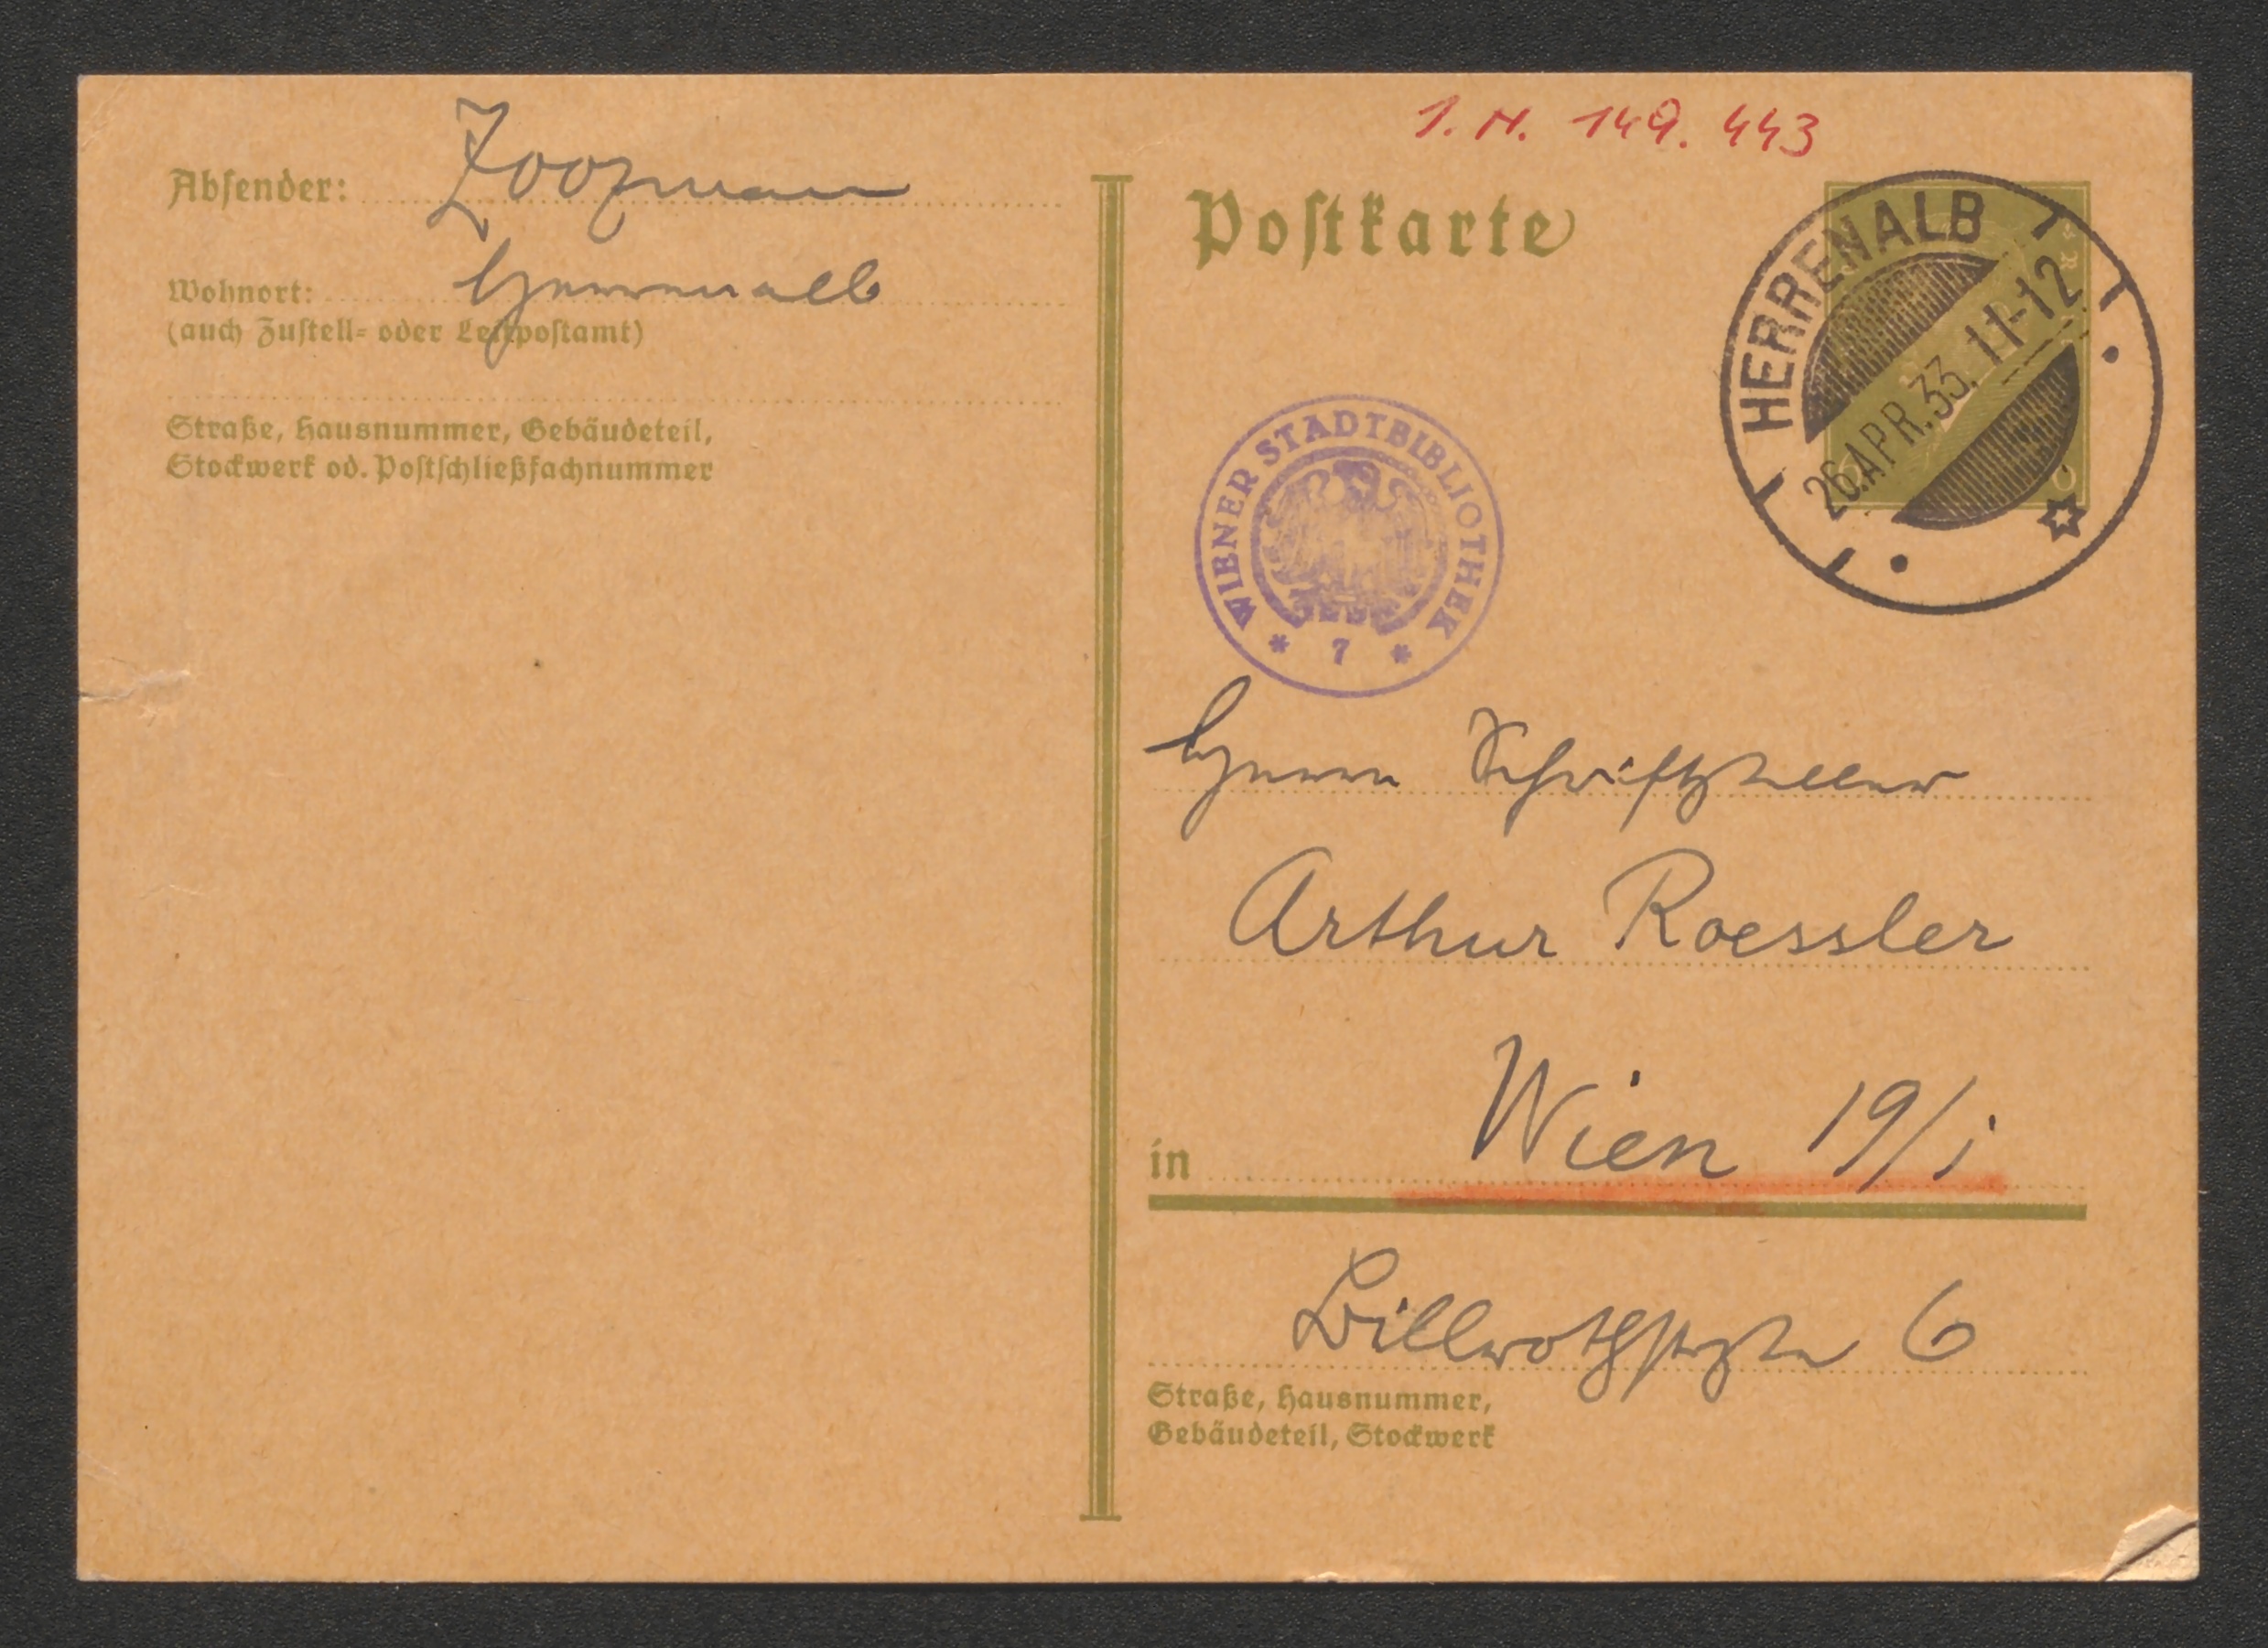 Absender: Zoozmann
Wohnort: Herrenalb
(auch Zustell- oder Leitpostamt)
Straße, Hausnummer, Gebäudeteil,
Stockwerk od. Postschließfachnummer
I. N. 149.443
Postkarte
HERRENALB
26.APR.33. 11-12
WIENER STADTBIBLIOTHEK
* 7 *
Herrn Schriftsteller
Arthur Roessler
in Wien 19/i
Billrothstraße 6
Straße, Hausnummer,
Gebäudeteil, Stockwerk